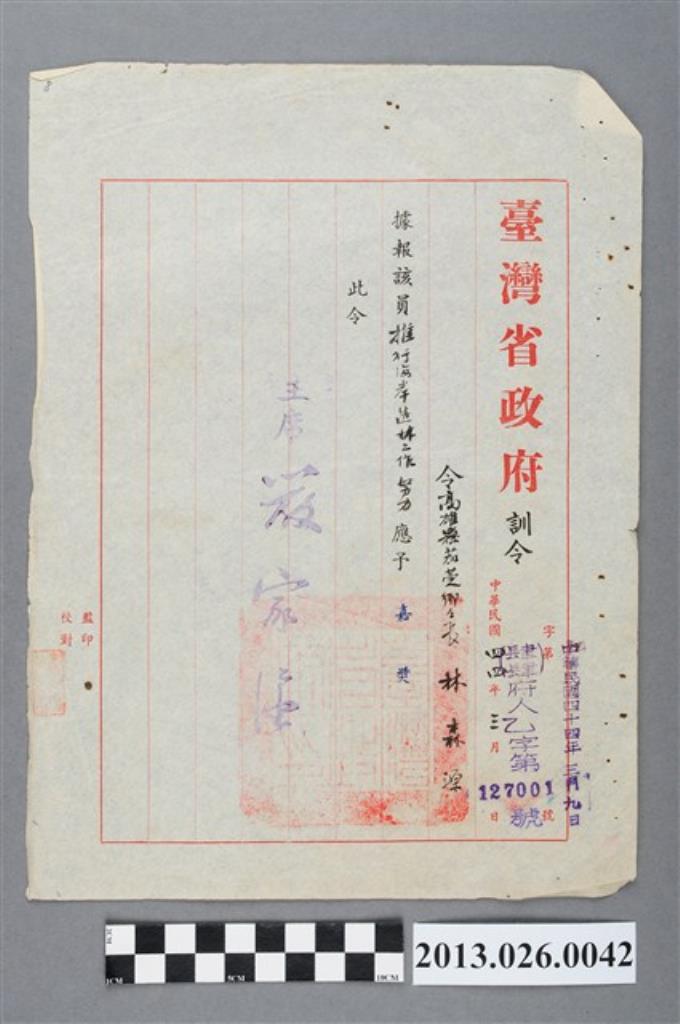 8
中華民國四十四年三月九日
臺灣省政府訓令
字第號
府人乙字第
127001號
中華民國四四年三月日
令高雄縣茄萣鄉鄉長林森源
據報該員推行海岸造林工作努力應予嘉獎
此令
主席嚴家淦
監印
校對
1CM
5CM
10CM
2013.026.0042